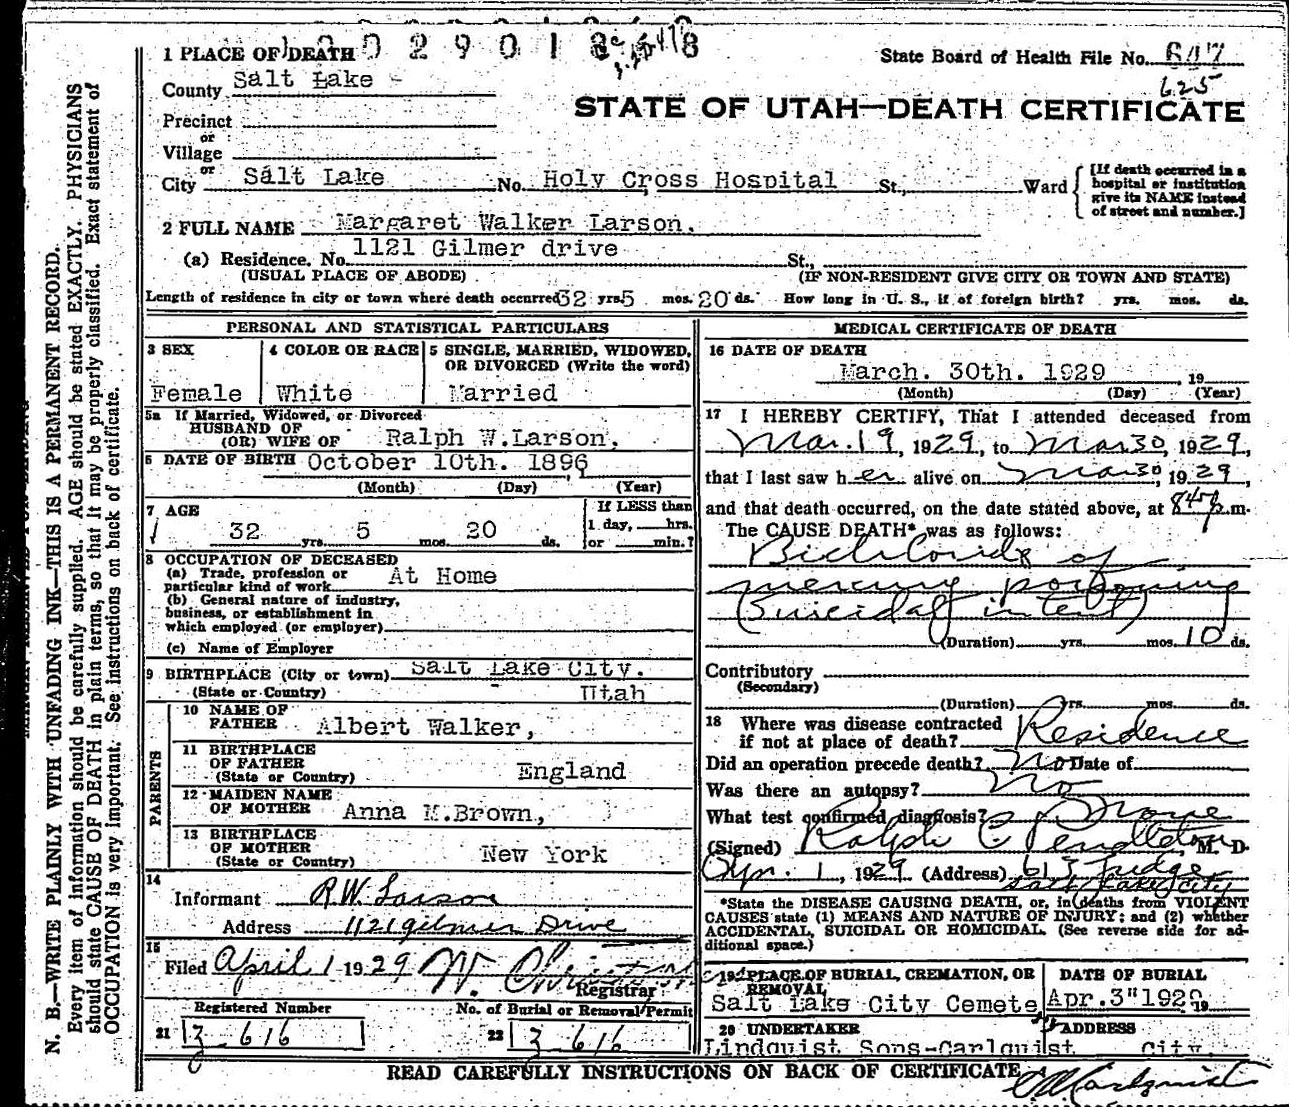 1 PLACE OF DEATH
State Board of Health File No. 647
625
County Salt Lake
STATE OF UTAH—DEATH CERTIFICATE
Precinct
or
Village
or
City Salt Lake No. Holy Cross Hospital St., Ward
[If death occurred in a hospital or institution give its NAME instead of street and number.]
2 FULL NAME Margaret Walker Larson.
(a) Residence. No. 1121 Gilmer drive St.,
(USUAL PLACE OF ABODE) (IF NON-RESIDENT GIVE CITY OR TOWN AND STATE)
Length of residence in city or town where death occurred 32 yrs. 5 mos. 20 ds. How long in U. S., if of foreign birth? yrs. mos. ds.
PERSONAL AND STATISTICAL PARTICULARS
3 SEX
Female
4 COLOR OR RACE
White
5 SINGLE, MARRIED, WIDOWED,
OR DIVORCED (Write the word)
Married
5a If Married, Widowed, or Divorced
HUSBAND OF
(OR) WIFE OF Ralph W.Larson.
6 DATE OF BIRTH October 10th. 1896
(Month) (Day) (Year)
7 AGE
32 yrs. 5 mos. 20 ds.
If LESS than
1 day, hrs.
or min.?
8 OCCUPATION OF DECEASED
(a) Trade, profession or
particular kind of work At Home
(b) General nature of industry,
business, or establishment in
which employed (or employer)
(c) Name of Employer
9 BIRTHPLACE (City or town) Salt Lake City.
(State or Country) Utah
PARENTS
10 NAME OF
FATHER Albert Walker,
11 BIRTHPLACE
OF FATHER
(State or Country) England
12 MAIDEN NAME
OF MOTHER Anna M.Brown,
13 BIRTHPLACE
OF MOTHER
(State or Country) New York
14
Informant R.W. Larson
Address 1121 Gilmer Drive
15
Filed April 1 1929
Registrar
Registered Number
21 3 616
No. of Burial or Removal Permit
22 3 616
MEDICAL CERTIFICATE OF DEATH
16 DATE OF DEATH
March. 30th. 1929 , 19
(Month) (Day) (Year)
17 I HEREBY CERTIFY, That I attended deceased from
Mar. 19, 1929, to Mar 30, 1929,
that I last saw her alive on Mar 30, 1929,
and that death occurred, on the date stated above, at 845 p.m.
The CAUSE DEATH* was as follows:
Bichloride of
mercury poisoning
(Suicidal intent)
(Duration) yrs. mos. 10 ds.
Contributory
(Secondary)
(Duration) yrs. mos. ds.
18 Where was disease contracted
if not at place of death? Residence
Did an operation precede death? No Date of
Was there an autopsy? No
What test confirmed diagnosis? None
(Signed) Ralph C. Pendleton, M. D.
Apr. 1, 1929 (Address) 613 Judge
Salt Lake City
*State the DISEASE CAUSING DEATH, or, in deaths from VIOLENT
CAUSES state (1) MEANS AND NATURE OF INJURY; and (2) whether
ACCIDENTAL, SUICIDAL OR HOMICIDAL. (See reverse side for ad-
ditional space.)
19 PLACE OF BURIAL, CREMATION, OR
REMOVAL
Salt Lake City Cemete
DATE OF BURIAL
Apr. 3" 1929 19
20 UNDERTAKER
Lindquist Sons-Carlquist
ADDRESS
City.
READ CAREFULLY INSTRUCTIONS ON BACK OF CERTIFICATE
N. B.—WRITE PLAINLY WITH UNFADING INK—THIS IS A PERMANENT RECORD.
Every item of information should be carefully supplied. AGE should be stated EXACTLY. PHYSICIANS
should state CAUSE OF DEATH in plain terms, so that it may be properly classified. Exact statement of
OCCUPATION is very important. See instructions on back of certificate.